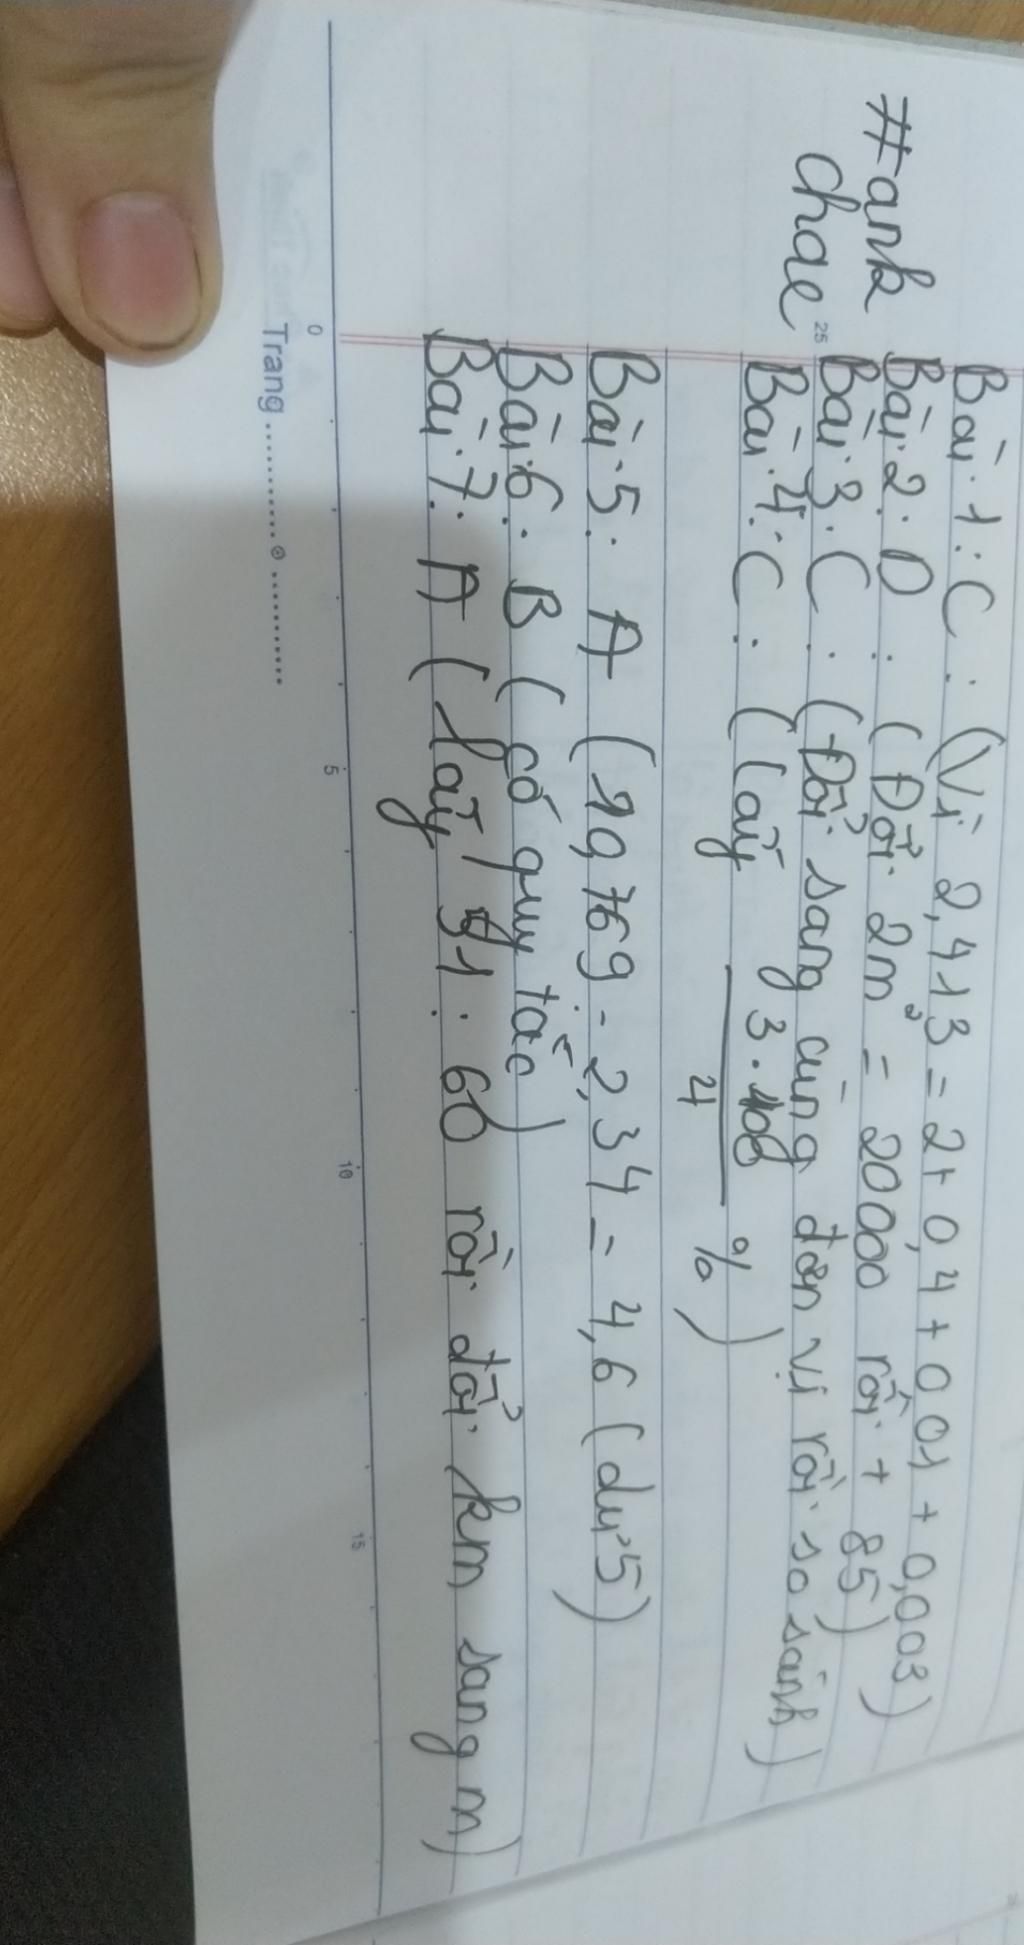 #ank
chae
Bài 1: C: (Vì 2,413 = 2+ 0,4 + 0,01 + 0,003)
Bài 2: D : (Đổi 2m² = 20000 rồi + 85)
Bài 3: C : (Đổi sang cùng đơn vị rồi so sánh)
Bài 4: C : (lấy 3.100/4 %)
Bài 5: A (19,769 - 2,34 = 4,6 (dư 5)
Bài 6: B (có quy tắc)
Bài 7: A (lấy 51 : 60 rồi đổi km sang m)
25
0
5
10
15
Trang